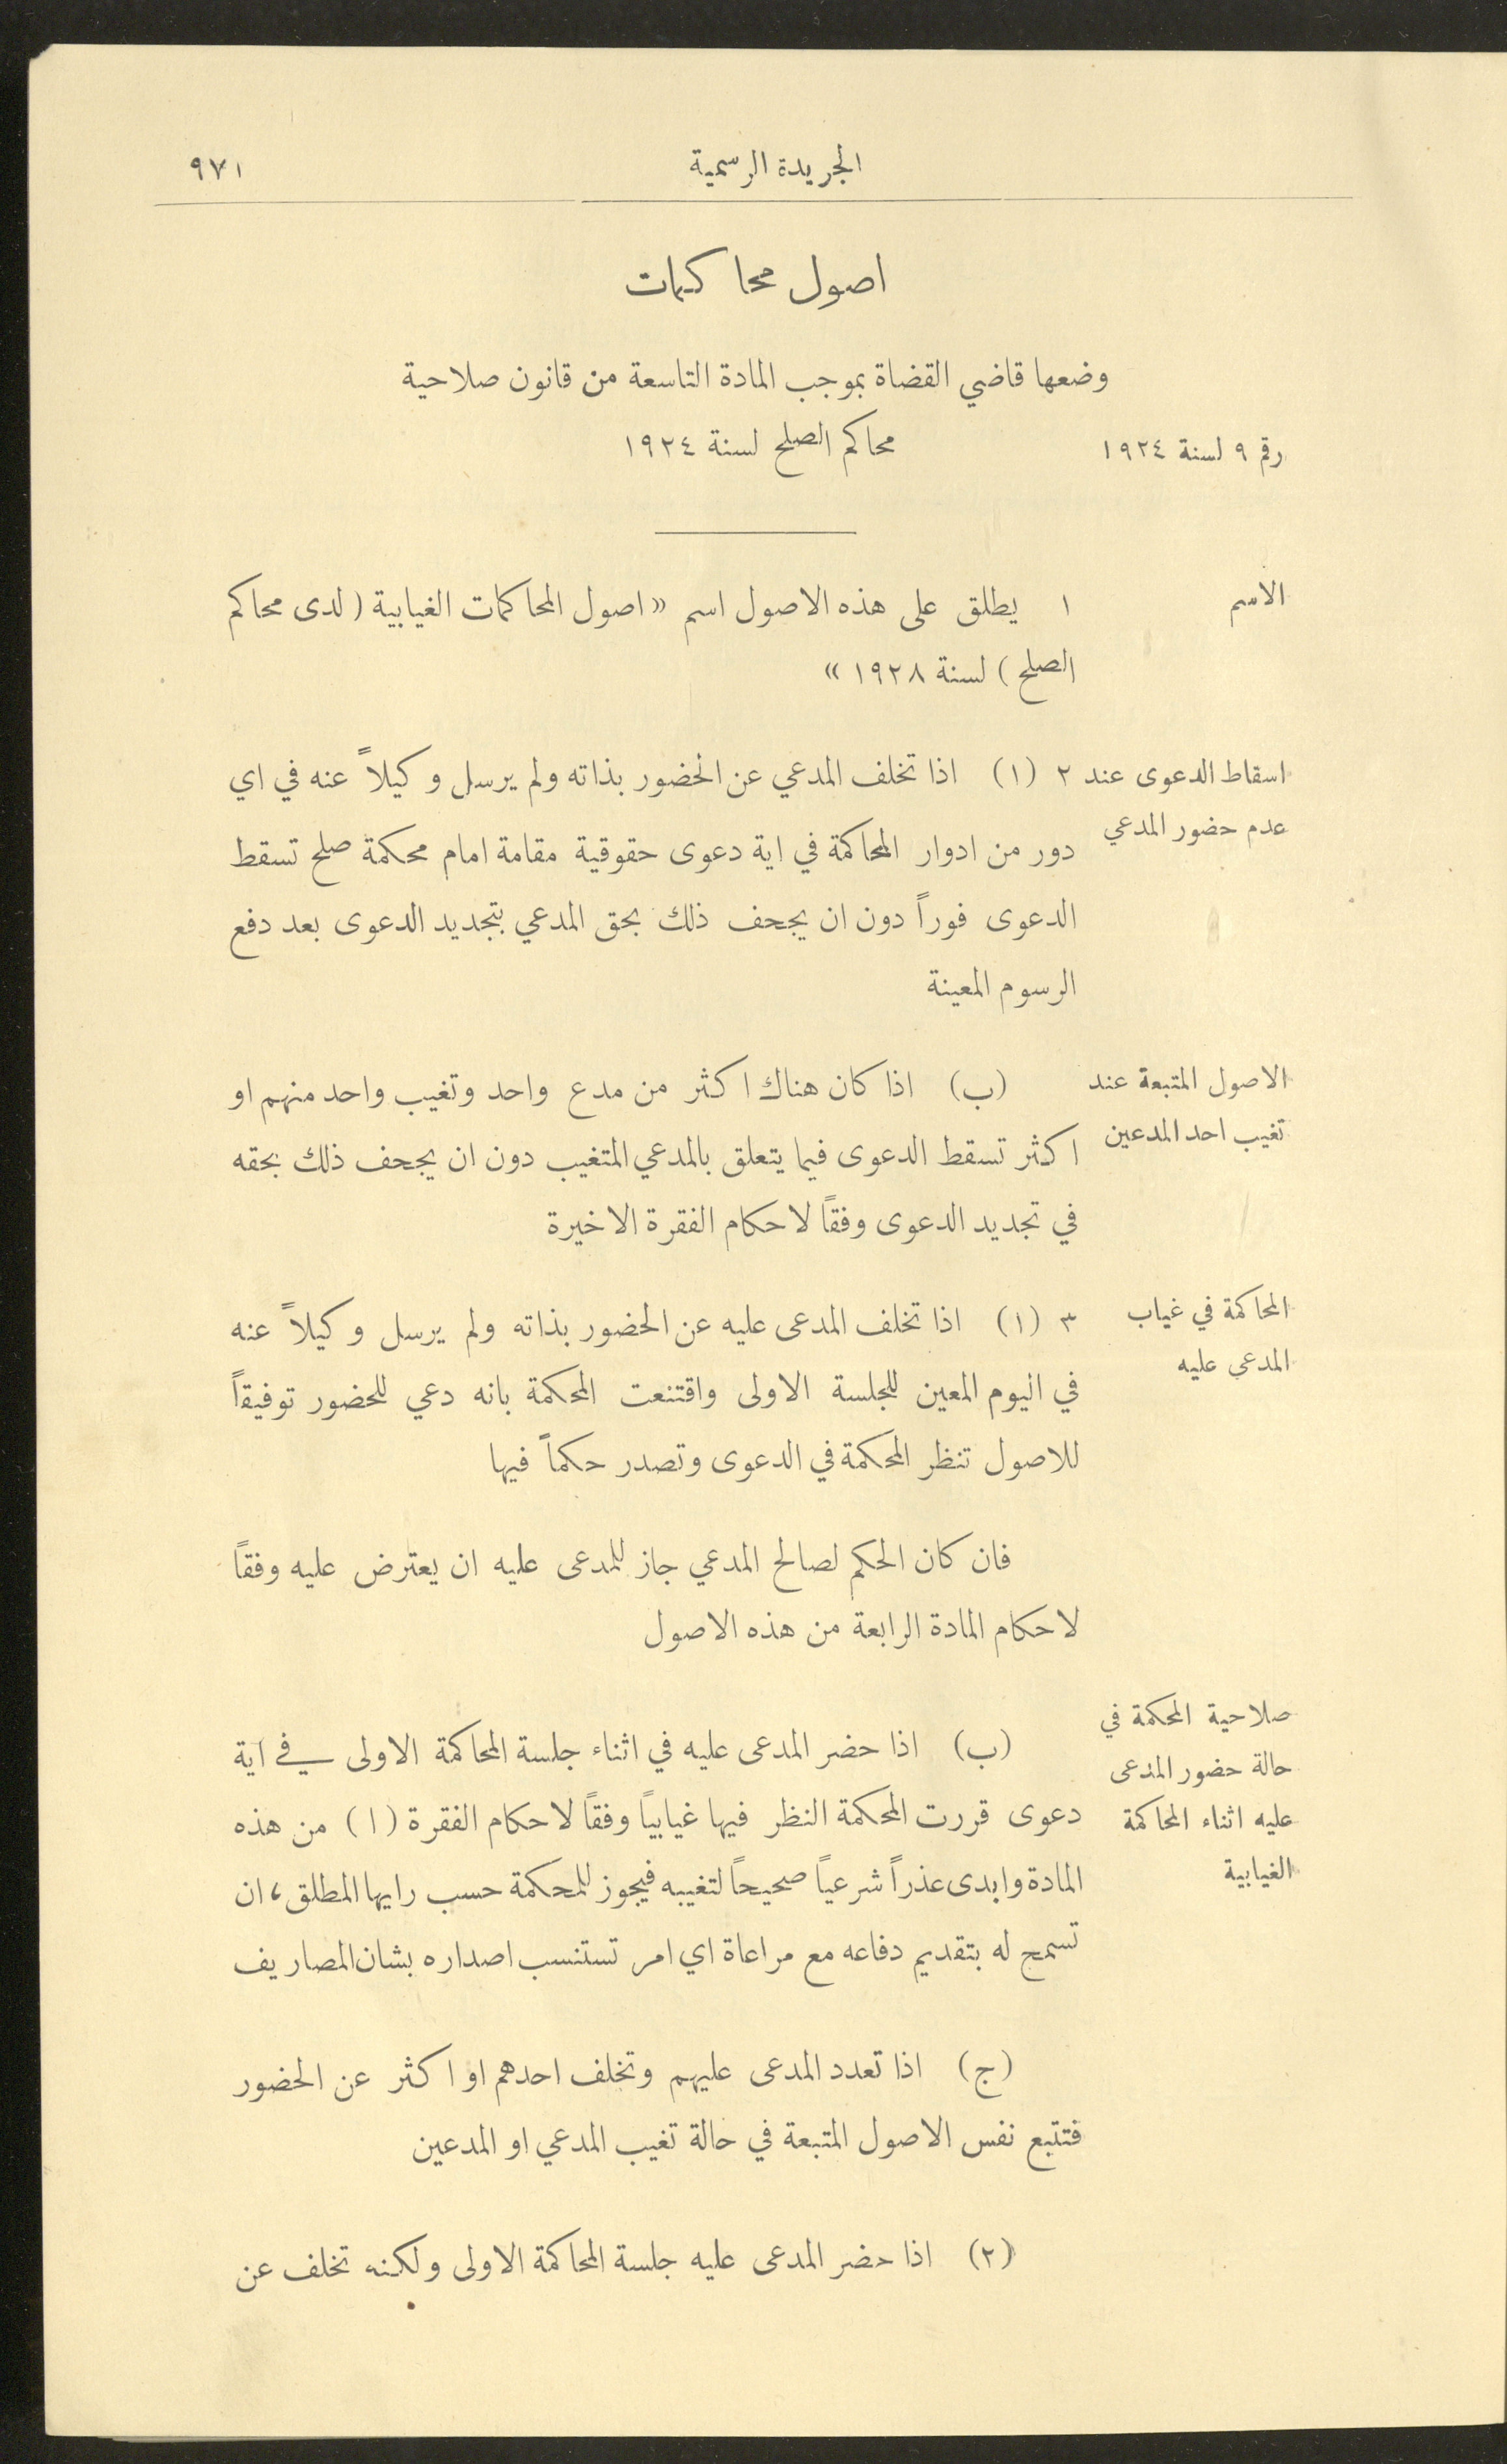 الجريدة الرسمية
٩٧١
اصول محاكمات
وضعها قاضي القضاة بموجب المادة التاسعة من قانون صلاحية
محاكم الصلح لسنة ١٩٢٤
رقم ٩ لسنة ١٩٢٤
الاسم
١ يطلق على هذه الاصول اسم « اصول المحاكمات الغيابية ( لدى محاكم
الصلح ) لسنة ١٩٢٨ »
اسقاط الدعوى عند
عدم حضور المدعي
٢ (١) اذا تخلف المدعي عن الحضور بذاته ولم يرسل وكيلاً عنه في اي
دور من ادوار المحاكمة في اية دعوى حقوقية مقامة امام محكمة صلح تسقط
الدعوى فوراً دون ان يجحف ذلك بحق المدعي بتجديد الدعوى بعد دفع
الرسوم المعينة
الاصول المتبعة عند
تغيب احد المدعين
(ب) اذا كان هناك اكثر من مدع واحد وتغيب واحد منهم او
اكثر تسقط الدعوى فيما يتعلق بالمدعي المتغيب دون ان يجحف ذلك بحقه
في تجديد الدعوى وفقاً لاحكام الفقرة الاخيرة
المحاكمة في غياب
المدعى عليه
٣ (١) اذا تخلف المدعى عليه عن الحضور بذاته ولم يرسل وكيلاً عنه
في اليوم المعين للجلسة الاولى واقتنعت المحكمة بانه دعي للحضور توفيقاً
للاصول تنظر المحكمة في الدعوى وتصدر حكماً فيها
فان كان الحكم لصالح المدعي جاز للمدعى عليه ان يعترض عليه وفقاً
لاحكام المادة الرابعة من هذه الاصول
صلاحية المحكمة في
حالة حضور المدعى
عليه اثناء المحاكمة
الغيابية
(ب) اذا حضر المدعى عليه في اثناء جلسة المحاكمة الاولى في اية
دعوى قررت المحكمة النظر فيها غيابياً وفقاً لاحكام الفقرة (١) من هذه
المادة وابدى عذراً شرعياً صحيحاً لتغيبه فيجوز للمحكمة حسب رايها المطلق، ان
تسمح له بتقديم دفاعه مع مراعاة اي امر تستنسب اصداره بشان المصاريف
(ج) اذا تعدد المدعى عليهم وتخلف احدهم او اكثر عن الحضور
فتتبع نفس الاصول المتبعة في حالة تغيب المدعي او المدعين
(٢) اذا حضر المدعى عليه جلسة المحاكمة الاولى ولكنه تخلف عن